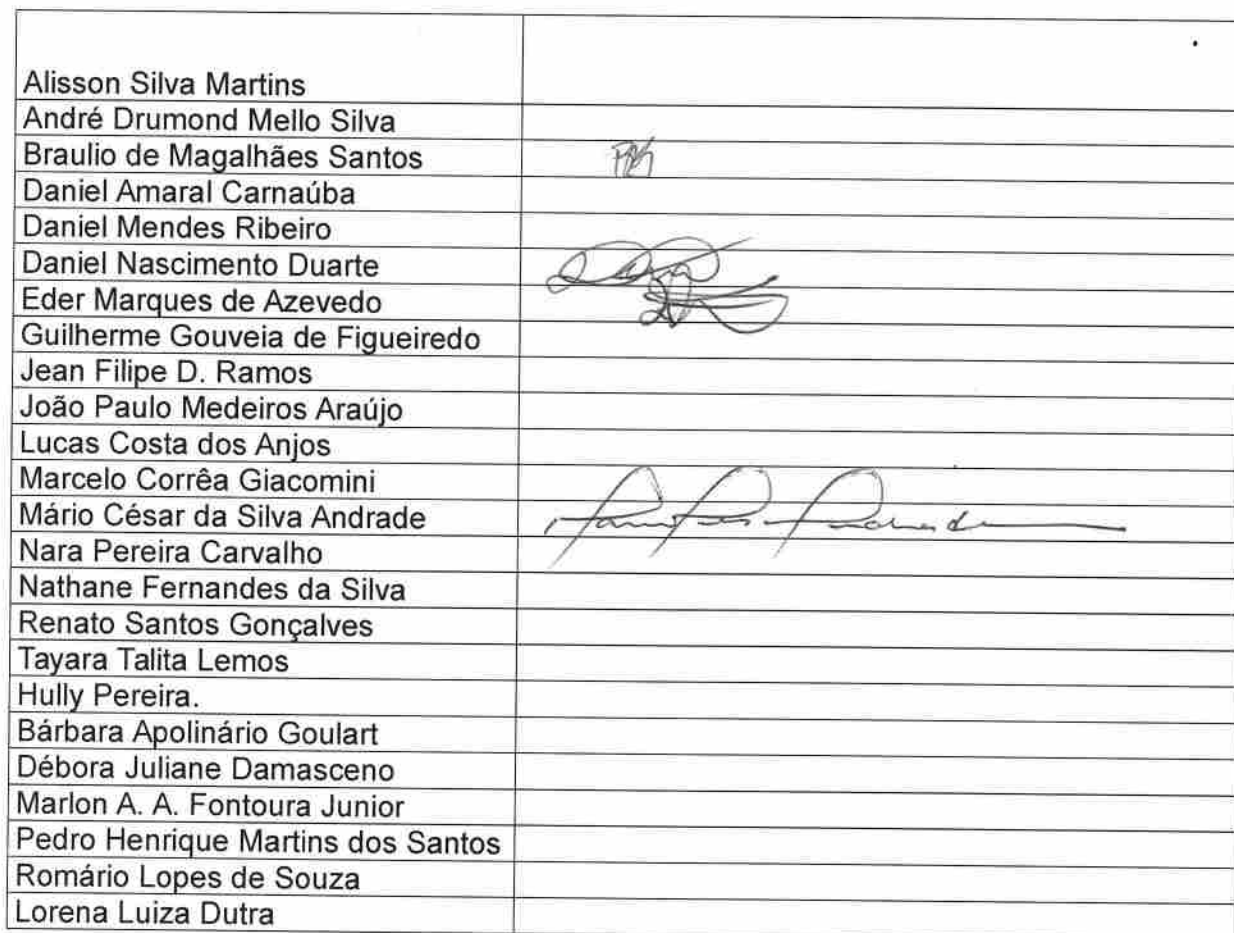 Alisson Silva Martins
André Drumond Mello Silva
Braulio de Magalhães Santos
Daniel Amaral Carnaúba
Daniel Mendes Ribeiro
Daniel Nascimento Duarte
Eder Marques de Azevedo
Guilherme Gouveia de Figueiredo
Jean Filipe D. Ramos
João Paulo Medeiros Araújo
Lucas Costa dos Anjos
Marcelo Corrêa Giacomini
Mário César da Silva Andrade
Nara Pereira Carvalho
Nathane Fernandes da Silva
Renato Santos Gonçalves
Tayara Talita Lemos
Hully Pereira.
Bárbara Apolinário Goulart
Débora Juliane Damasceno
Marlon A. A. Fontoura Junior
Pedro Henrique Martins dos Santos
Romário Lopes de Souza
Lorena Luiza Dutra